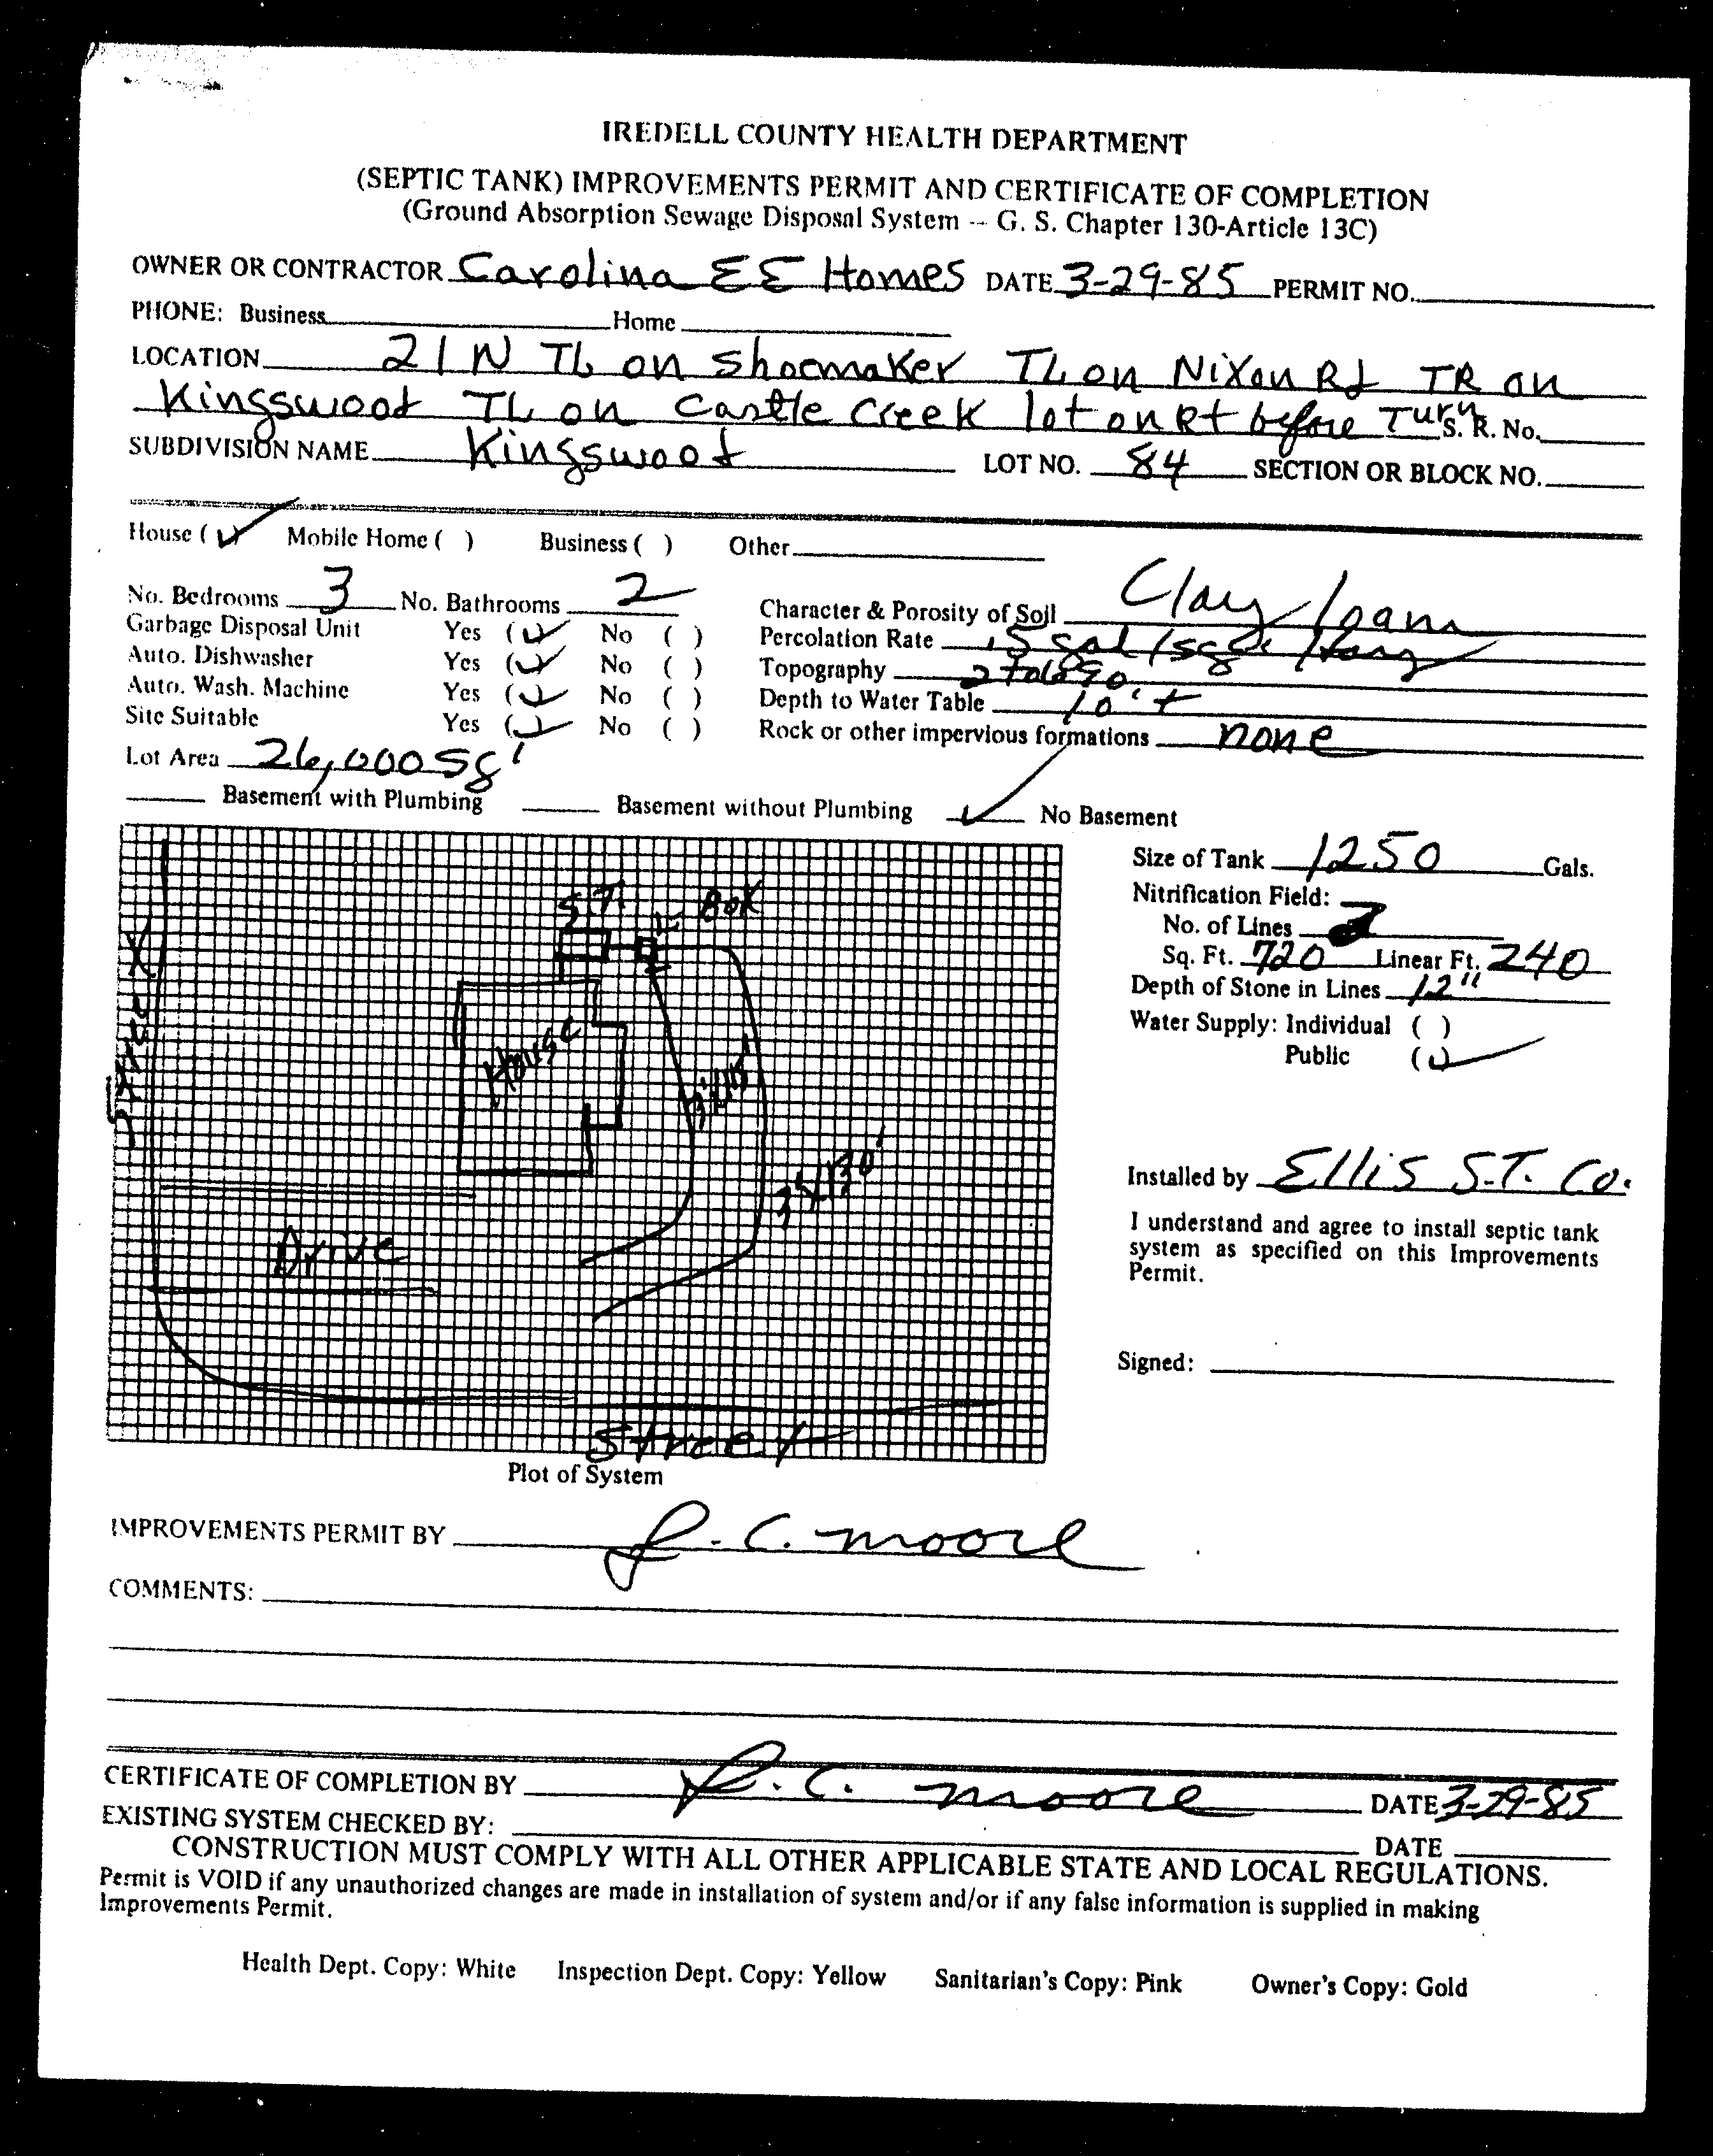 IREDELL COUNTY HEALTH DEPARTMENT
(SEPTIC TANK) IMPROVEMENTS PERMIT AND CERTIFICATE OF COMPLETION
(Ground Absorption Sewage Disposal System -- G. S. Chapter 130-Article 13C)
OWNER OR CONTRACTOR Carolina EE Homes DATE 3-29-85 PERMIT NO.
PHONE: Business Home
LOCATION 21 N TL on Shoemaker TL on Nixon Rd TR on
Kingswood TL on Castle Creek lot on Rt before Turn S. R. No.
SUBDIVISION NAME Kingswood LOT NO. 84 SECTION OR BLOCK NO.
House (✓) Mobile Home ( ) Business ( ) Other
No. Bedrooms 3 No. Bathrooms 2 Character & Porosity of Soil Clay loam
Garbage Disposal Unit Yes (✓) No ( ) Percolation Rate .5 gal/sq
Auto. Dishwasher Yes (✓) No ( ) Topography 2 to
Auto. Wash. Machine Yes (✓) No ( ) Depth to Water Table 10' +
Site Suitable Yes (✓) No ( ) Rock or other impervious formations none
Lot Area 26,000 sq'
Basement with Plumbing Basement without Plumbing ✓ No Basement
Size of Tank 1250 Gals.
Nitrification Field:
No. of Lines
Sq. Ft. 720 Linear Ft. 240
Depth of Stone in Lines 12"
Water Supply: Individual ( )
Public (✓)
Installed by Ellis S.T. Co.
I understand and agree to install septic tank
system as specified on this Improvements
Permit.
Signed:
S.T.
Box
House
3'x110'
3'x130'
Drive
Street
Plot of System
IMPROVEMENTS PERMIT BY R. C. Moore
COMMENTS:
CERTIFICATE OF COMPLETION BY R. C. Moore DATE 3-29-85
EXISTING SYSTEM CHECKED BY: DATE
CONSTRUCTION MUST COMPLY WITH ALL OTHER APPLICABLE STATE AND LOCAL REGULATIONS.
Permit is VOID if any unauthorized changes are made in installation of system and/or if any false information is supplied in making
Improvements Permit.
Health Dept. Copy: White Inspection Dept. Copy: Yellow Sanitarian's Copy: Pink Owner's Copy: Gold